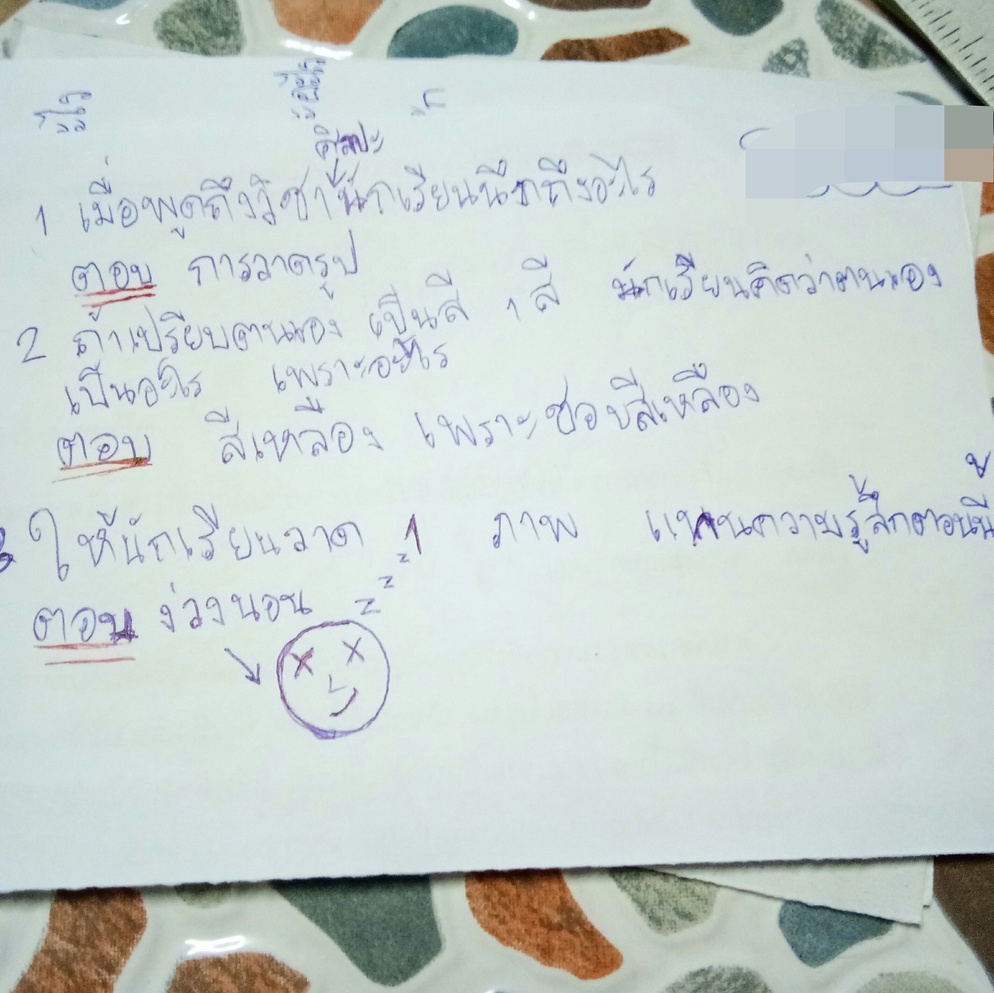 ศิลปะ
1 เมื่อพูดถึงวิชานักเรียนนึกถึงอะไร
ตอบ การวาดรูป
2 ถ้าเปรียบตนเอง เป็นสี 1 สี นักเรียนคิดว่าตนเอง
เป็นอะไร เพราะอะไร
ตอบ สีเหลือง เพราะชอบสีเหลือง
3 ให้นักเรียนวาด 1 ภาพ แทนความรู้สึกตอนนี้
ตอบ ง่วงนอน z z z z